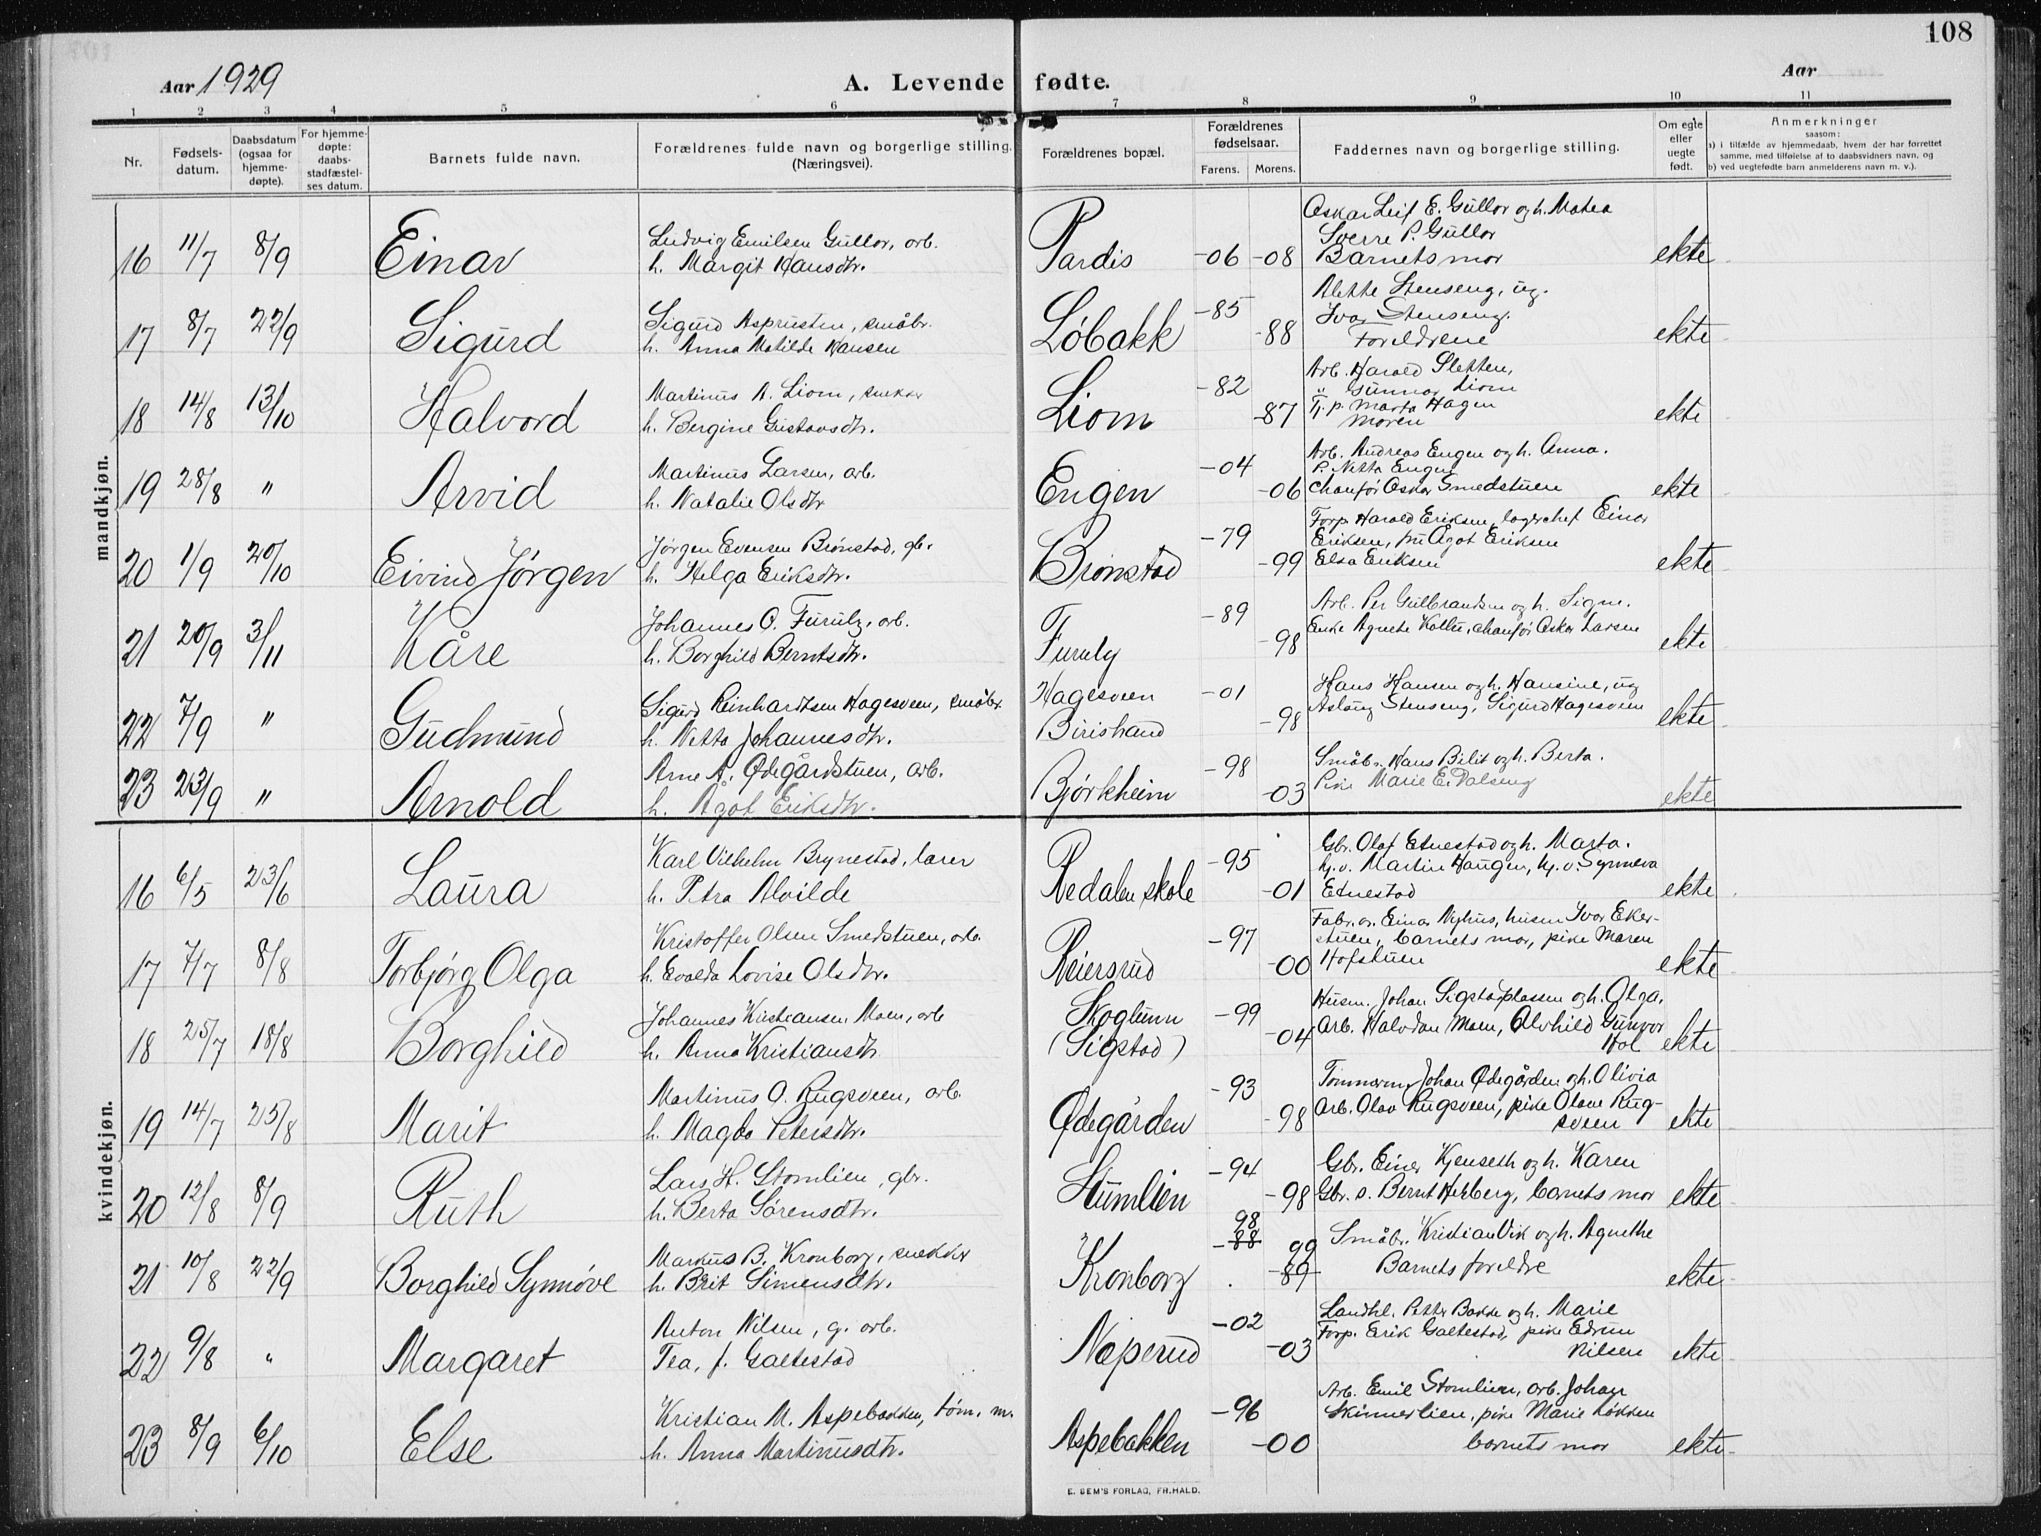 108
Aar 1929
A. Levende fødte.
Aar
1 2 3 4 5 6 7 8 9 10 11
Nr.
Fødsels-
datum.
Daabsdatum
(ogsaa for
hjemme-
døpte).
For hjemme-
døpte:
daabs-
stadfæstel-
ses datum.
Barnets fulde navn.
Forældrenes fulde navn og borgerlige stilling.
(Næringsvei).
Forældrenes bopæl.
Forældrenes
fødselsaar.
Farens. Morens.
Faddernes navn og borgerlige stilling.
Om egte
eller
uegte
født.
Anmerkninger
saasom:
a) i tilfælde av hjemmedaab, hvem der har forrettet
samme, med tilføielse af to daabsvidners navn, og
b) ved uegtefødte barn anmelderens navn m. v.).
mandkjøn.
16 11/7 8/9 Einar
Ludvig Emilsen Gullor, arb.
h. Margit Hansdtr.
Pardis -06 -08
Oskar Leif E. Gullor og h. Matea
Sverre P. Gullor
Barnets mor
ekte
17 8/7 22/9 Sigurd
Sigurd Asprusten, småbr.
h. Anna Matilde Hansen
Løbakk -85 -88
Alette Stenseng, ug.
Ivar Stenseng.
Foreldrene
ekte
18 14/8 13/10 Halvord
Martinus A. Liom, snekker
h. Bergine Gustavsdtr.
Liom -82 -87
Arb. Harald Sletten,
" Gunnar Liom
Tj. p. Marta Hagen
Moren
ekte
19 28/8 " Arvid
Martinus Larsen, arb.
h. Natalie Olsdtr
Engen -04 -06
Arb. Andreas Engen og h. Anna.
P. Netta Engen
Chaufør Oskar Smedstuen
ekte
20 1/9 20/10 Eivind Jørgen
Jørgen Evensen Brønstad, gbr.
h. Helga Eriksdtr.
Brønstad -79 -99
Forp. Harald Eriksen, lagerchef Einar
Eriksen, fru Ågot Eriksen
Elsa Eriksen
ekte
21 20/9 3/11 Kåre
Johannes O. Furuly, arb.
h. Borghild Berntsdtr.
Furuly -89 -98
Arb. Per Gulbrandsen og h. Signe.
Enke Agnete Kollu, chauför Oskar Larsen
ekte
22 7/9 " Gudmund
Sigurd Reinhardtsen Hagesveen, småbr.
h. Netta Johannesdtr.
Hagesveen
Biristrand
-01 -98
Hans Hansen og h. Hansine, ug
Aslaug Stenseng, Sigurd Hagesveen
ekte
23 23/9 " Arnold
Arne A. Ødegårdstuen, arb.
h. Ågot Eriksdtr.
Bjørkheim -98 -03
Småbr. Hans Bilit og h. Berta.
Pike Marie E. Dalseng
ekte
kvindekjøn.
16 6/5 23/6 Laura
Karl Vilhelm Brynestad, lærer
h. Petra Alvilde
Redalen skole -95 -01
Gbr. Olaf Etnestad og h. Marta.
hj.v. Martin Haugen, hj.v. Synneva
Etnestad
ekte
17 7/7 8/8 Torbjørg Olga
Kristoffer Olsen Smedstuen, arb.
h. Evalda Lovise Olsdtr.
Reiersrud -97 -00
Fabr. ar. Einar Nyhus, husm Ivar Eker-
stuen, barnets mor, pike Maren
Hofstuen
ekte
18 25/7 18/8 Borghild
Johannes Kristiansen Moen, arb
h. Anna Kristiansdtr
Skoglunn
(Sigstad)
-99 -04
Husm. Johan Sigstadplassen og h. Olga.
Arb. Halvdan Moen, Alvhild Gunvor
Hol
ekte
19 14/7 25/8 Marit
Martinus O. Rugsveen, arb.
h. Magda Petersdtr.
Ødegården -93 -98
Tømmerm. Johan Ødegården og h. Olivia
Arb. Olav Rugsveen, pike Olave Rug-
sveen
ekte
20 12/8 8/9 Ruth
Lars H. Stomlien, gbr.
h. Berta Sørensdtr.
Stumlien -94 -98
Gbr. Einar Kjenseth og h. Karen
Gbr. s. Bernt Hekberg, barnets mor
ekte
21 10/8 22/9 Borghild Synnøve
Markus B. Kronborg, snekker
h. Brit Simensdtr.
Kronborg 98 -88 99 -89
Småbr. Kristian Vik og h. Agnethe
Barnets foreldre
ekte
22 9/8 " Margaret
Anton Nilsen, g. arb.
Tea, f. Galtestad
Næperud -02 -03
Landhl. Petter Bakke og h. Marie
Forp. Erik Galtestad, pike Edrun
Nilsen
ekte
23 8/9 6/10 Else
Kristian M. Aspebakken, tøm. m.
h. Anna Martinusdtr.
Aspebakken -96 -00
Arb. Emil Stomlien, arb. Johan
Skinnerlien, pike Marie Løkken
barnets mor
ekte
E. SEM'S FORLAG, FR.HALD.